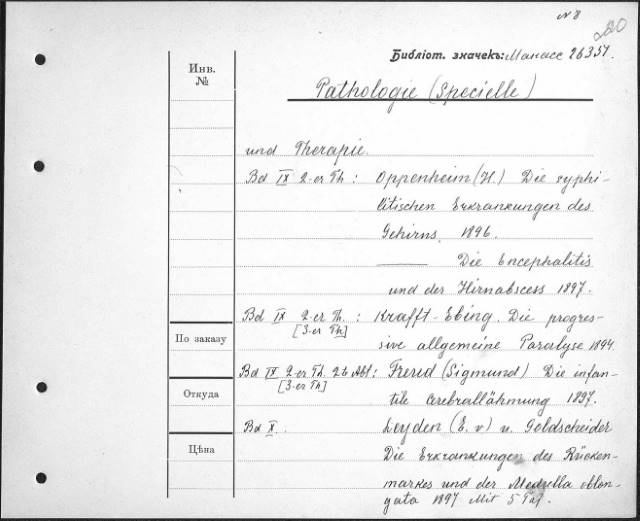 N 8
220
Библіот. значекъ: Манасс 26351.
Инв. №
Pathologie (Specielle)
und Therapie.
Bd IX 2-er Th: Oppenheim (H.) Die syphi-
litischen Erkrankungen des
Gehirns, 1896.
——— Die Encephalitis
und der Hirnabscess 1897.
Bd IX 2-er Th. : Krafft-Ebing. Die progres-
[3-er Th]
По заказу
sive allgemeine Paralyse 1894.
Bd IX 2-er Th. 2te Abt: Freud (Sigmund) Die infan-
[3-er Th]
Откуда
tile Cerebrallähmung 1897.
Bd X. Leyden (E. v) u. Goldscheider
Цѣна
Die Erkrankungen des Rücken-
markes und der Medulla oblon-
gata 1897 Mit 5 Taf.